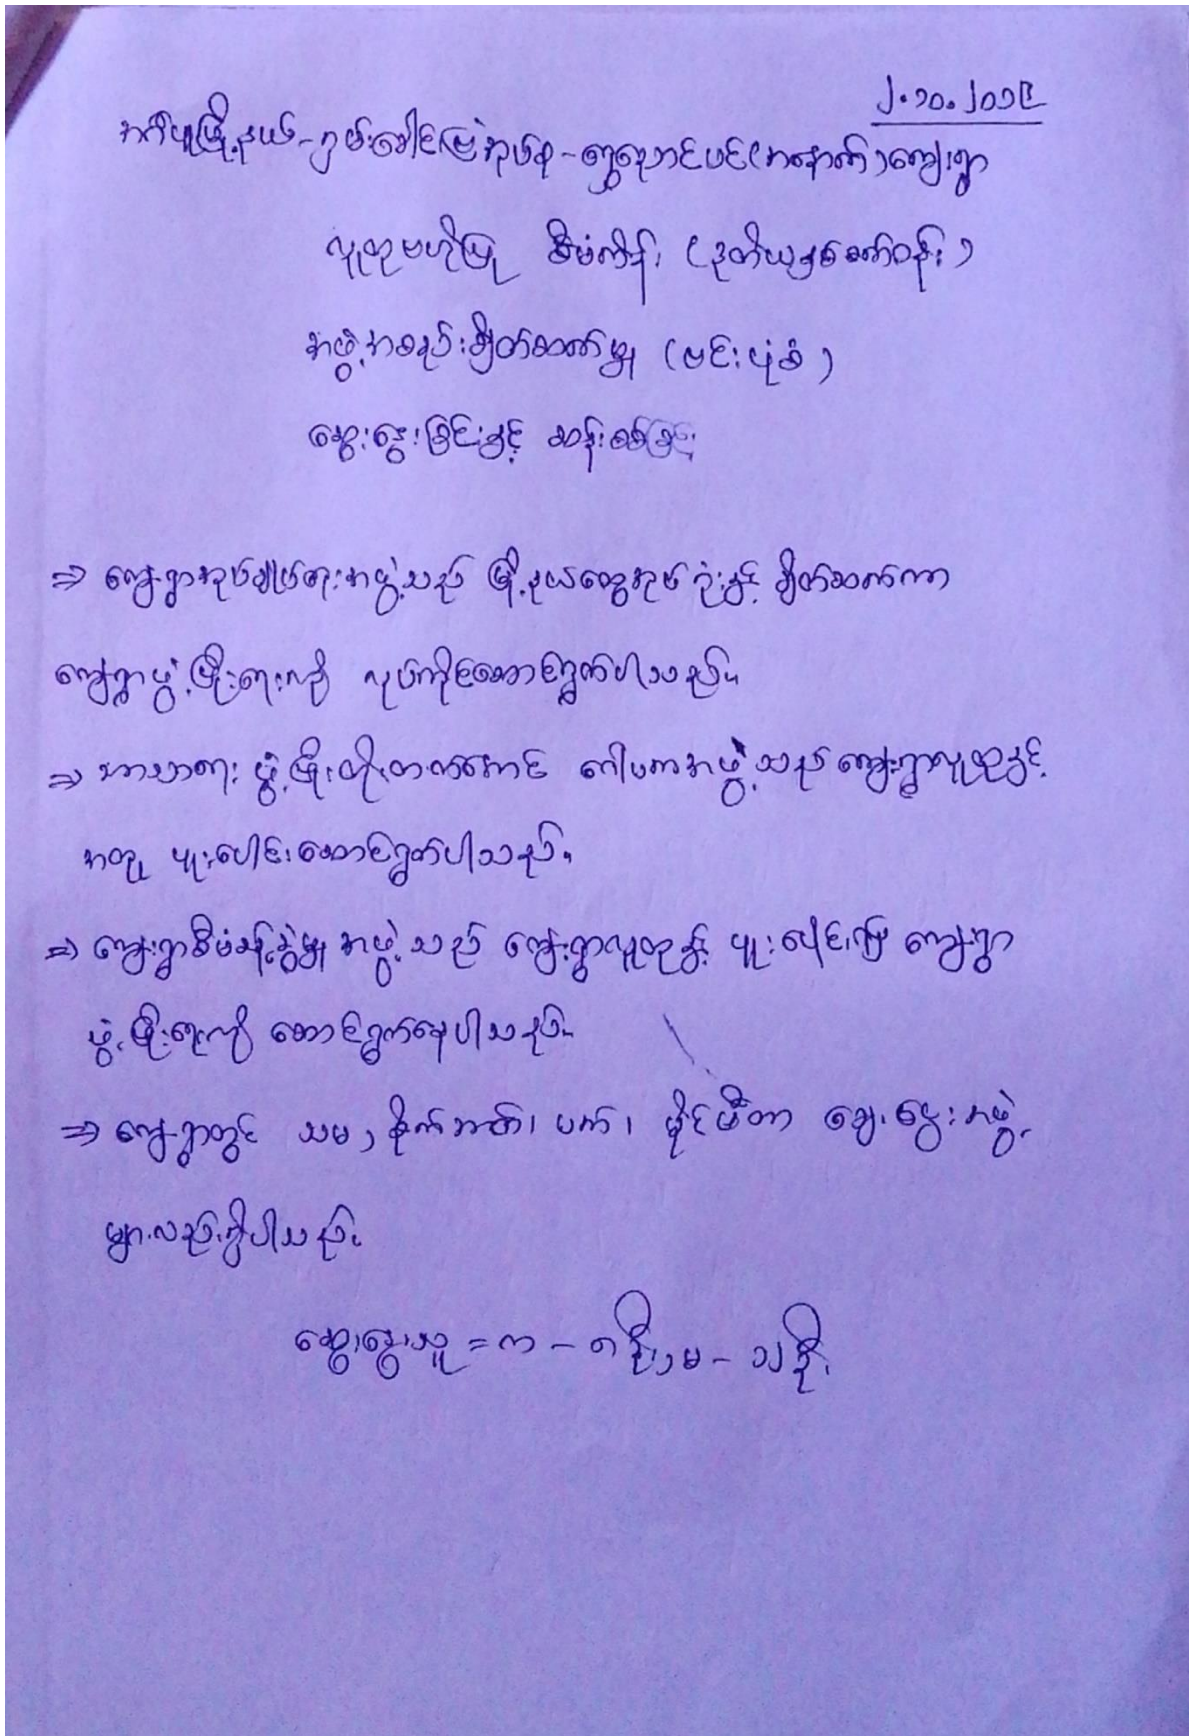 ၂.၁၀.၂၀၁၉
အင်္ဂပူမြို့နယ် - ရှမ်းခေါင်မြဲအုပ်စု - ရွှေညောင်ပင်(အနောက်)ကျေးရွာ
လူထုဗဟိုပြု စီမံကိန်း (ဒုတိယနှစ်စက်ဝန်း)
အဖွဲ့အစည်းချိတ်ဆက်မှု (ဗင်းပုံစံ)
ဆွေးနွေးခြင်းနှင့် ဆန်းစစ်ခြင်း
⇒ ကျေးရွာအုပ်ချုပ်ရေးအဖွဲ့သည် မြို့နယ်ထွေအုပ်ရုံးနှင့် ချိတ်ဆက်ကာ
ကျေးရွာဖွံ့ဖြိုးရေးကို လုပ်ကိုင်ဆောင်ရွက်ပါသည်။
⇒ ဘာသာရေး ဖွံ့ဖြိုးတိုးတက်အောင် ဂေါပကအဖွဲ့သည် ကျေးရွာလူထုနှင့်
အတူ ပူးပေါင်းဆောင်ရွက်ပါသည်။
⇒ ကျေးရွာစီမံခန့်ခွဲမှု အဖွဲ့သည် ကျေးရွာလူထုနှင့် ပူးပေါင်း၍ ကျေးရွာ
ဖွံ့ဖြိုးရေးကို ဆောင်ရွက်နေပါသည်။
⇒ ကျေးရွာတွင် သမ၊ စိုက်ဘဏ်၊ ပက်၊ မိုင်မီတာ ချေးငွေးအဖွဲ့
များလည်းရှိပါသည်။
ဆွေးနွေးသူ = က - ၈ ဦး၊ မ - ၁၂ ဦး